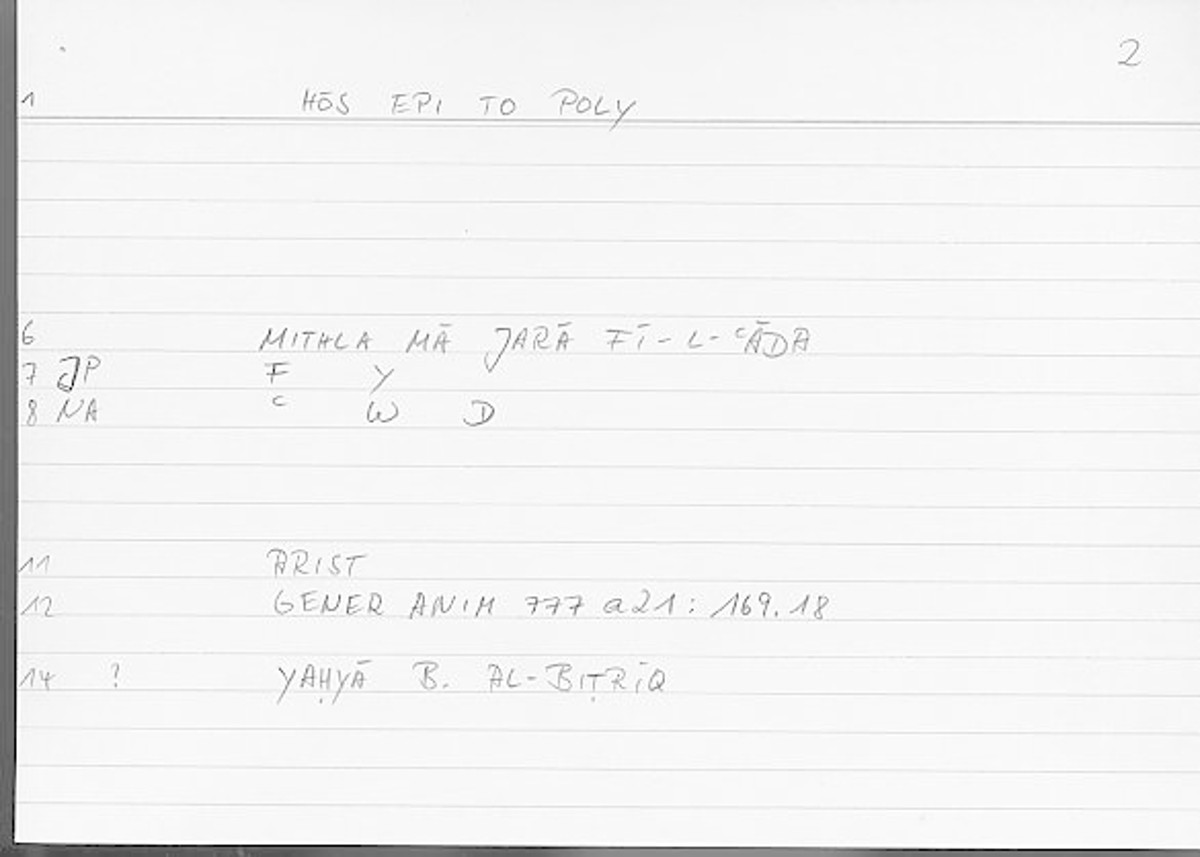 2
1 HŌS EPI TO POLY
6 MITHLA MĀ JARĀ FĪ-L-ʿĀDA
7 JP F Y
8 NA ʿ W D
11 ARIST
12 GENER ANIM 777 a21: 169.18
14 ? YAḤYĀ B. AL-BIṬRĪQ